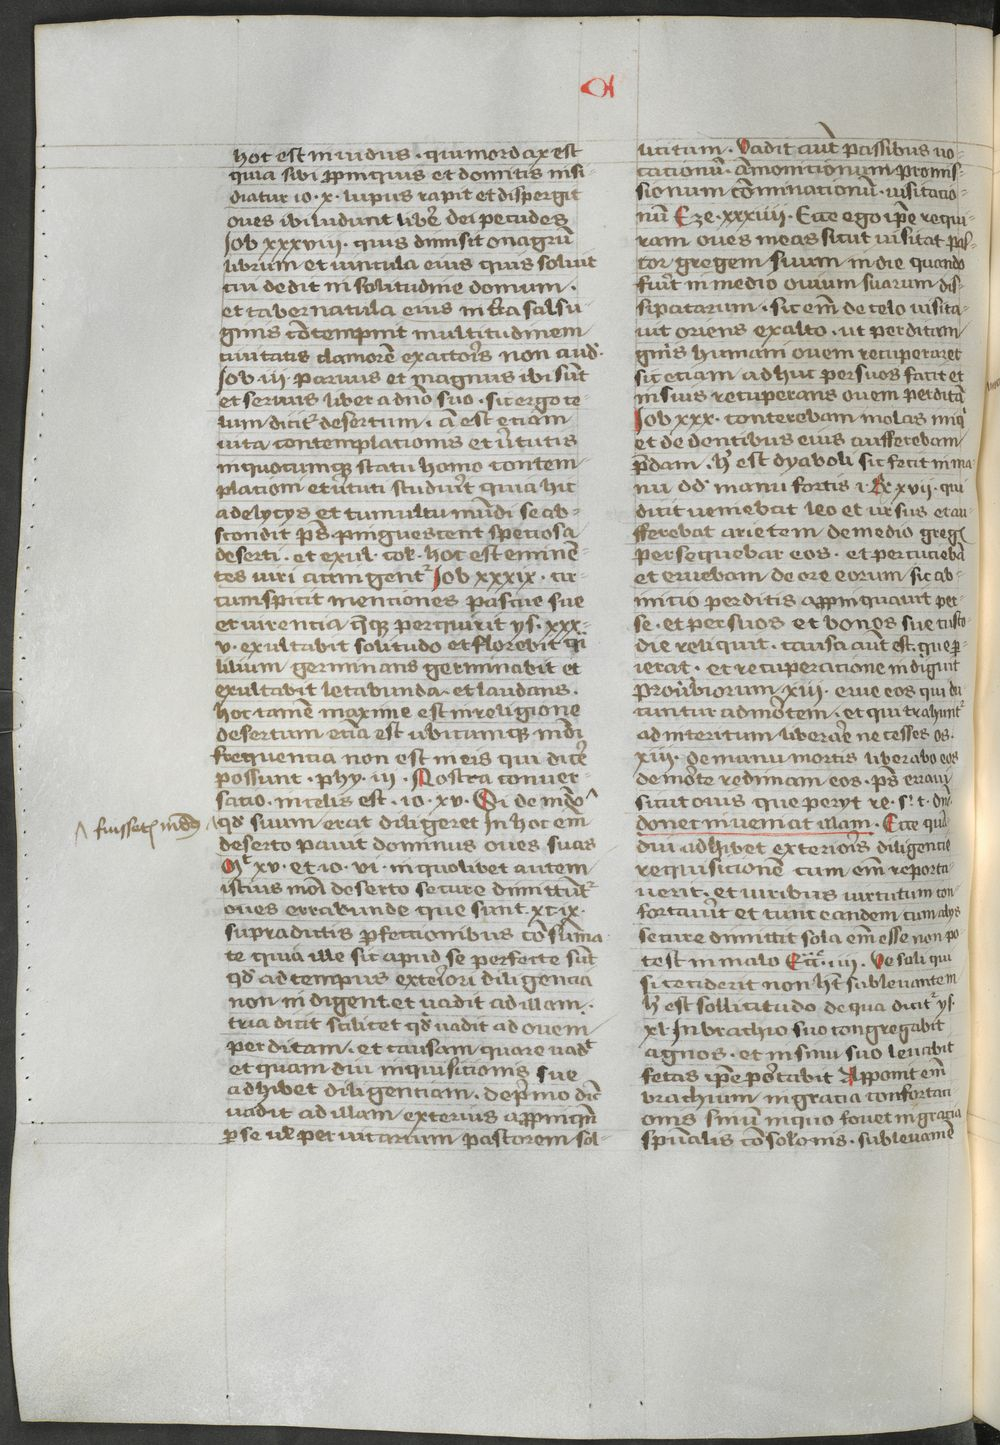 hoc est inuidus · qui mordax est
quia sibi ppinquis et domitis insi-
diatur io · x · lupus rapit et dispergit
oues ibi ludunt libē dei pecudes
Job xxxviii · quis dimisit onagrū
librum et uincula eius quis soluit
cui dedit in solitudine domum ·
et tabernacula eius in tra salsu-
ginis cōtempnit multitudinem
ciuitatis clamorē exactoris non aud'
Job iii · paruus et magnus ibi sūt
et seruus liber a dño suo · sic ergo ce-
lum dicit desertum · est etiam
uita contemplationis et ūtutis
in quocumq statu homo contem-
plationi et ūtuti studuit quia hic
a delycys et tumultu mūdi se ab-
scondit p̄s · pinguescent speciosa
deserti · et exul · col · hoc est eminē-
tes uiri cingent Job xxxix · cir-
cumspicit mentiones pascue sue
et uirentia q̄q perquirit ys · xxx-
v · exultabit solitudo et florebit q̄
lilium germinans germinabit et
exultabit letabunda · et laudans ·
hoc tamē maxime est in religione
desertum etiā est ubicumq mūdi
frequentia non est in eris qui dicē
possunt · phy · iii · Nostra conuer-
satio · in celis est · io · xv · Si de mūdo ^
^ fuissetis mūdus
qd suum erat diligeret In hoc em̄
deserto pauit dominus oues suas
Mt xv · et io · vi · in quolibet autem
istius modi deserto secure dimittūt
oues errabunde que sunt · xcix ·
supradictis pfectionibus cōsūma-
te quia ille sic apud se perfecte sūt
qd ad tempus exteriori diligencia
non indigent et uadit ad illam ·
tria dicit scilicet qd uadit ad ouem
perditam · et causam quare uadt
et quam diu inquisitionis sue
adhibet diligentiam · de pmo dic̄
uadit ad illam exterius appinqn̄
p se ul per uicarium pastorem sol-
licitum · Vadit aut̄ passibus uo-
cationū · āmonitionum · promis-
sionum cōminationū · uisitatio-
nū Eze · xxxiiii · Ecce ego ip̄e requi-
ram oues meas sicut uisitat pas-
tor gregem suum in die quando
fuit in medio ouium suarum dis-
sipatarum · sic em̄ de celo uisita-
uit oriens exalto · ut perditam
gn̄is humani ouem recuperaret
sic etiam adhuc per suos facit et
in suis recuperans ouem perditā
Job xxx · conterebam molas iniq̄
et de dentibus eius aufferebam
p̄dam · h̄ est dyaboli sic fecit in ma-
nu dd manu fortis i · R xvii · qui
dicit ueniebat leo et ursus et au-
fferebat arietem de medio gregis
persequebar eos · et percutiebā
et eruebam de ore eorum sic ab
initio perditis appinquauit per
se · et per suos et bones sue custo-
die reliquit · causa aut̄ est · que p-
ierat · et recuperacione indiguit
prouerbiorum xiii · erue eos qui du-
cuntur ad mortem · et qui trahunt
ad interitum liberare ne cesses os ·
xiii · de manu mortis liberabo eos
de morte redimam eos · p̄s erraui
sicut ouis que peryt re · s · t · dn̄i
donec inueniat illam · Ecce quā
diu adhibet exterioris diligencie
requisicionē cum em̄ reporta-
uerit · et uiribus uirtutum con-
fortauit et tunc eandem cum alys
secure dimittit sola em̄ esse non po-
test in malo Ecc̄ · iiii · Ve soli qui
si ceciderit non ht̄ subleuantem
h̄ est sollicitudo de qua dicit ys ·
xl In brachio suo congregabit
agnos · et in sinu suo leuabit
fetas ip̄e portabit Apponit em̄
brachium in gracia confortaci-
onis sinū in quo fouet in gracia
spūalis cōsolonis · subleuamē